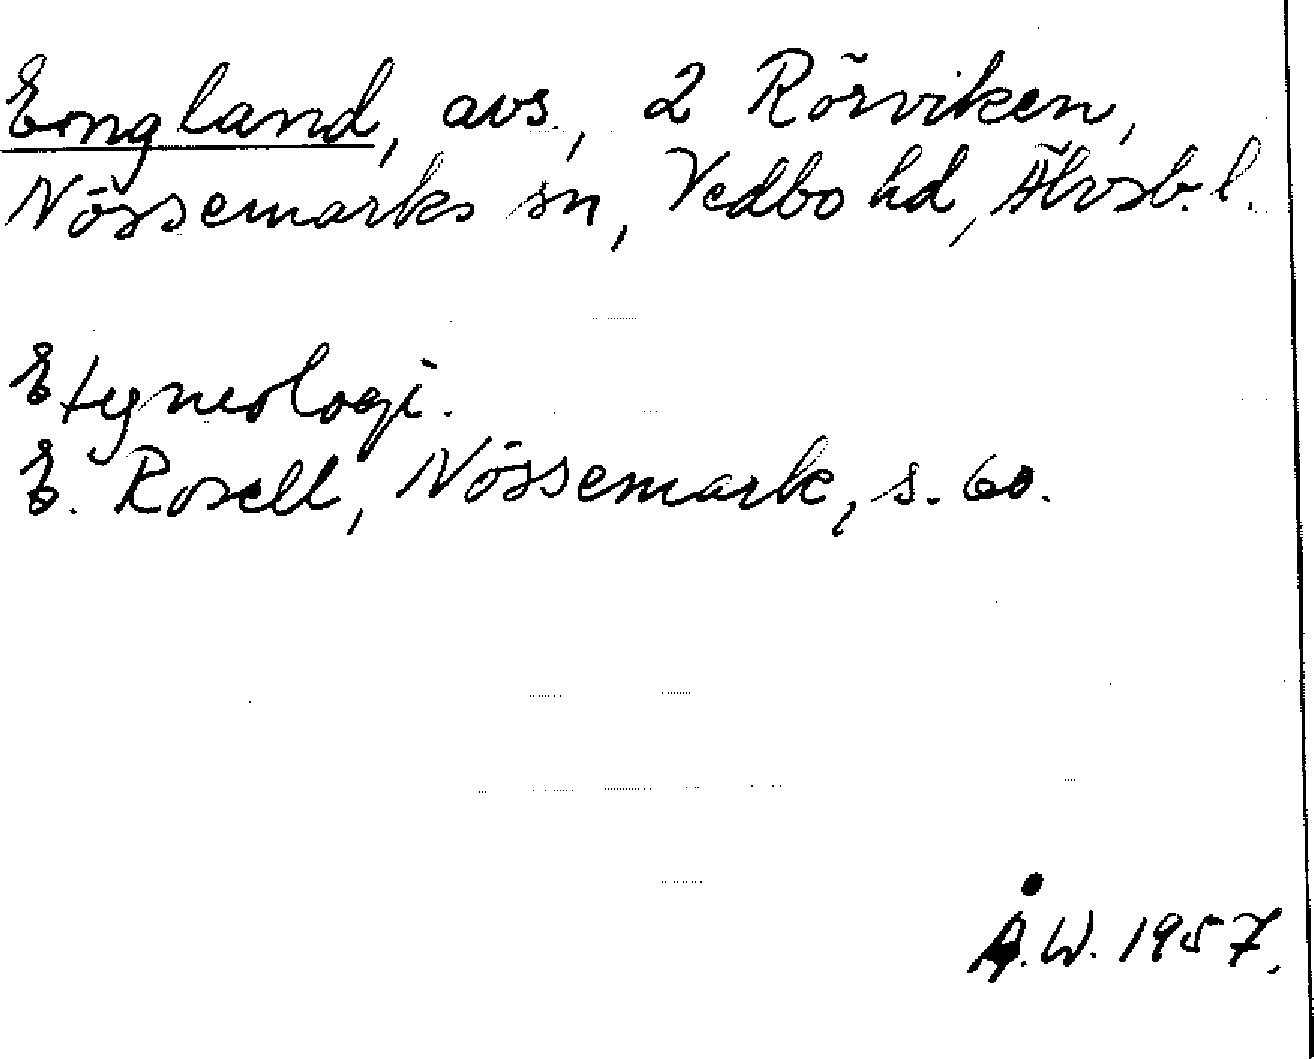 England, avs., 2 Rörviken,
Nössemarks sn, Vedbo hd, Älvsb. l.
Etymologi.
E. Rosell, Nössemark, s. 60.
Å.W. 1957.